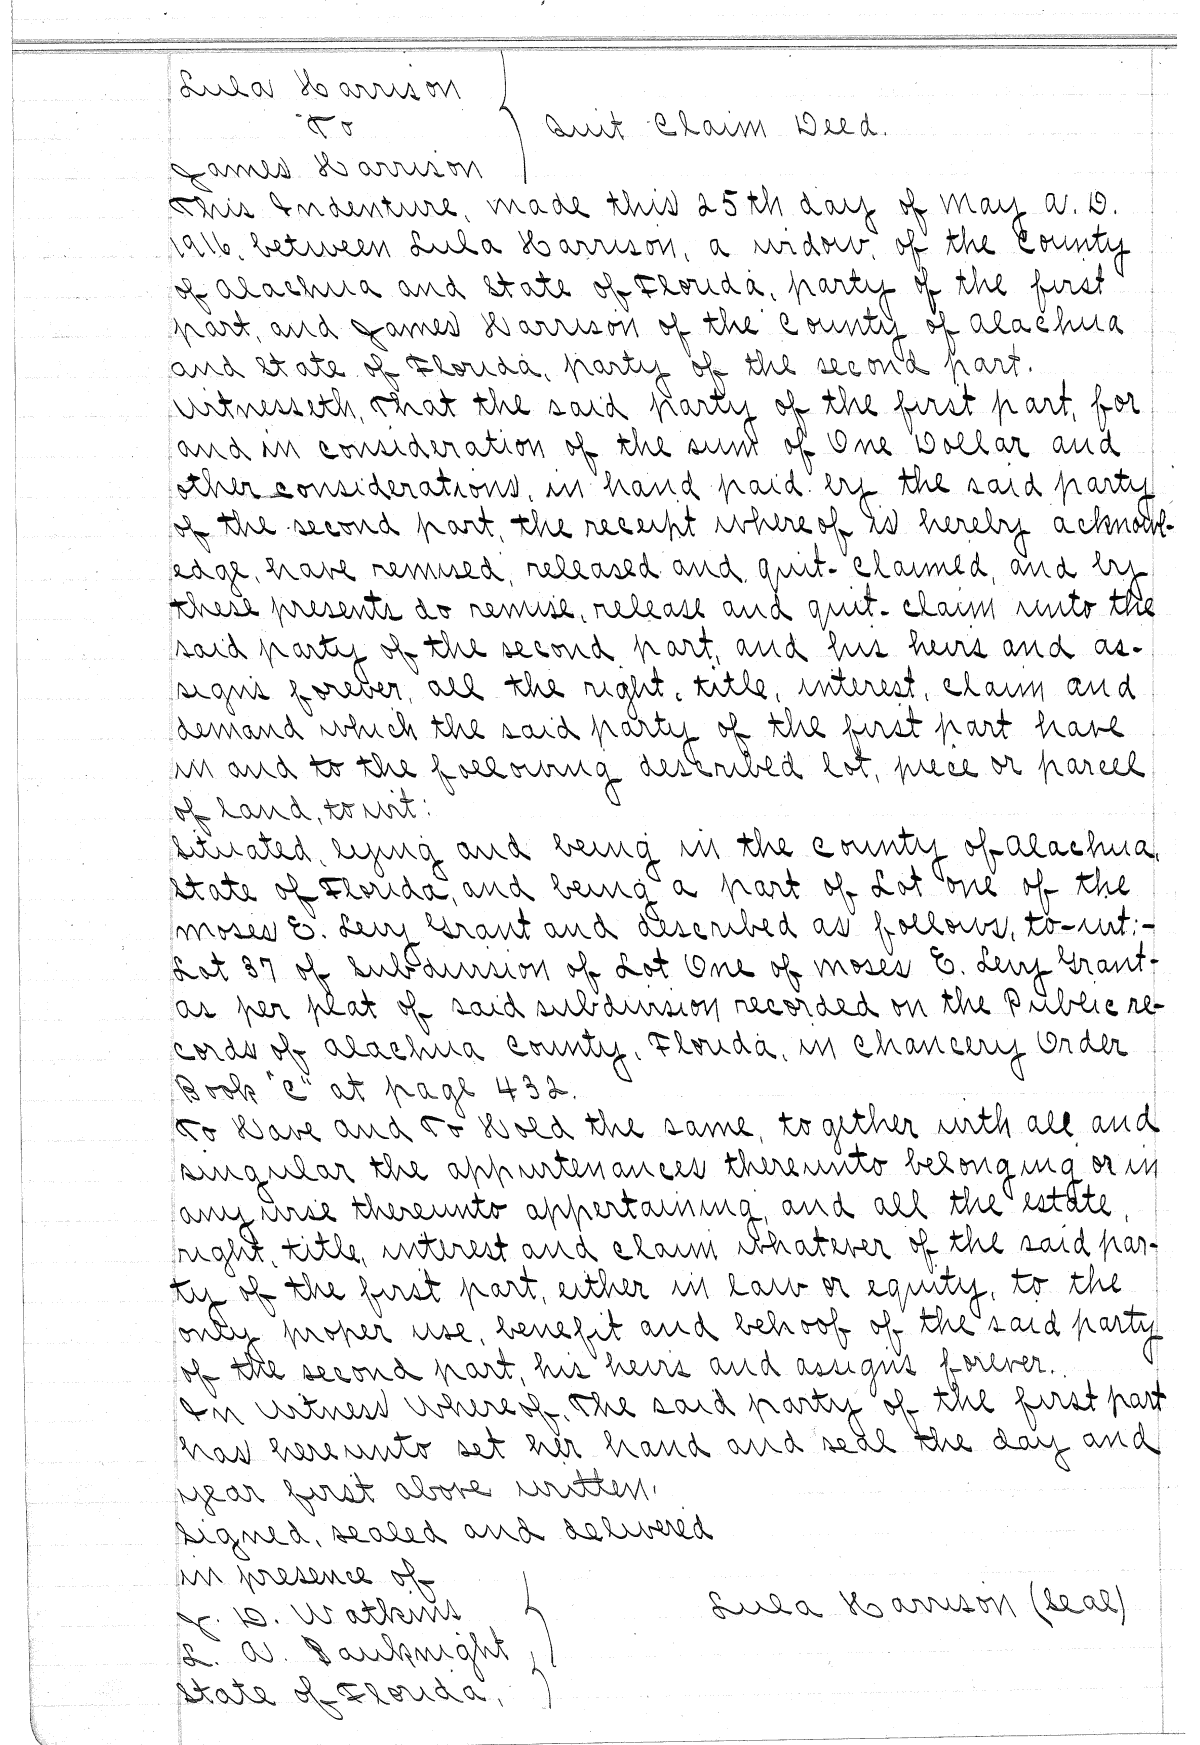 Lula Harrison
To
Quit Claim Deed.
James Harrison
This Indenture, made this 25th day of May A. D.
1916, between Lula Harrison, a widow, of the County
of Alachua and State of Florida, party of the first
part, and James Harrison of the County of Alachua
and State of Florida, party of the second part.
Witnesseth, That the said party of the first part, for
and in consideration of the sum of One Dollar and
other considerations, in hand paid by the said party
of the second part, the receipt whereof is hereby acknowl-
edge, have remised, released and quit-claimed, and by
these presents do remise, release and quit-claim unto the
said party of the second part, and his heirs and as-
signs forever, all the right, title, interest, claim and
demand which the said party of the first part have
in and to the following described lot, piece or parcel
of land, to wit:
Situated, lying and being in the County of Alachua,
State of Florida, and being a part of Lot one of the
Moses E. Levy Grant and described as follows, to-wit:-
Lot 37 of Subdivision of Lot One of Moses E. Levy Grant-
as per plat of said subdivision recorded on the Public re-
cords of Alachua County, Florida, in Chancery Order
Book "C" at page 432.
To Have and To Hold the same, together with all and
singular the appurtenances thereunto belonging or in
anywise thereunto appertaining, and all the estate,
right, title, interest and claim whatever of the said par-
ty of the first part, either in law or equity, to the
only proper use, benefit and behoof of the said party
of the second part, his heirs and assigns forever.
In Witness Whereof, The said party of the first part
has hereunto set her hand and seal the day and
year first above written.
Signed, sealed and delivered
in presence of
J. D. Watkins
Lula Harrison (Seal)
L. A. Bauknight
State of Florida,